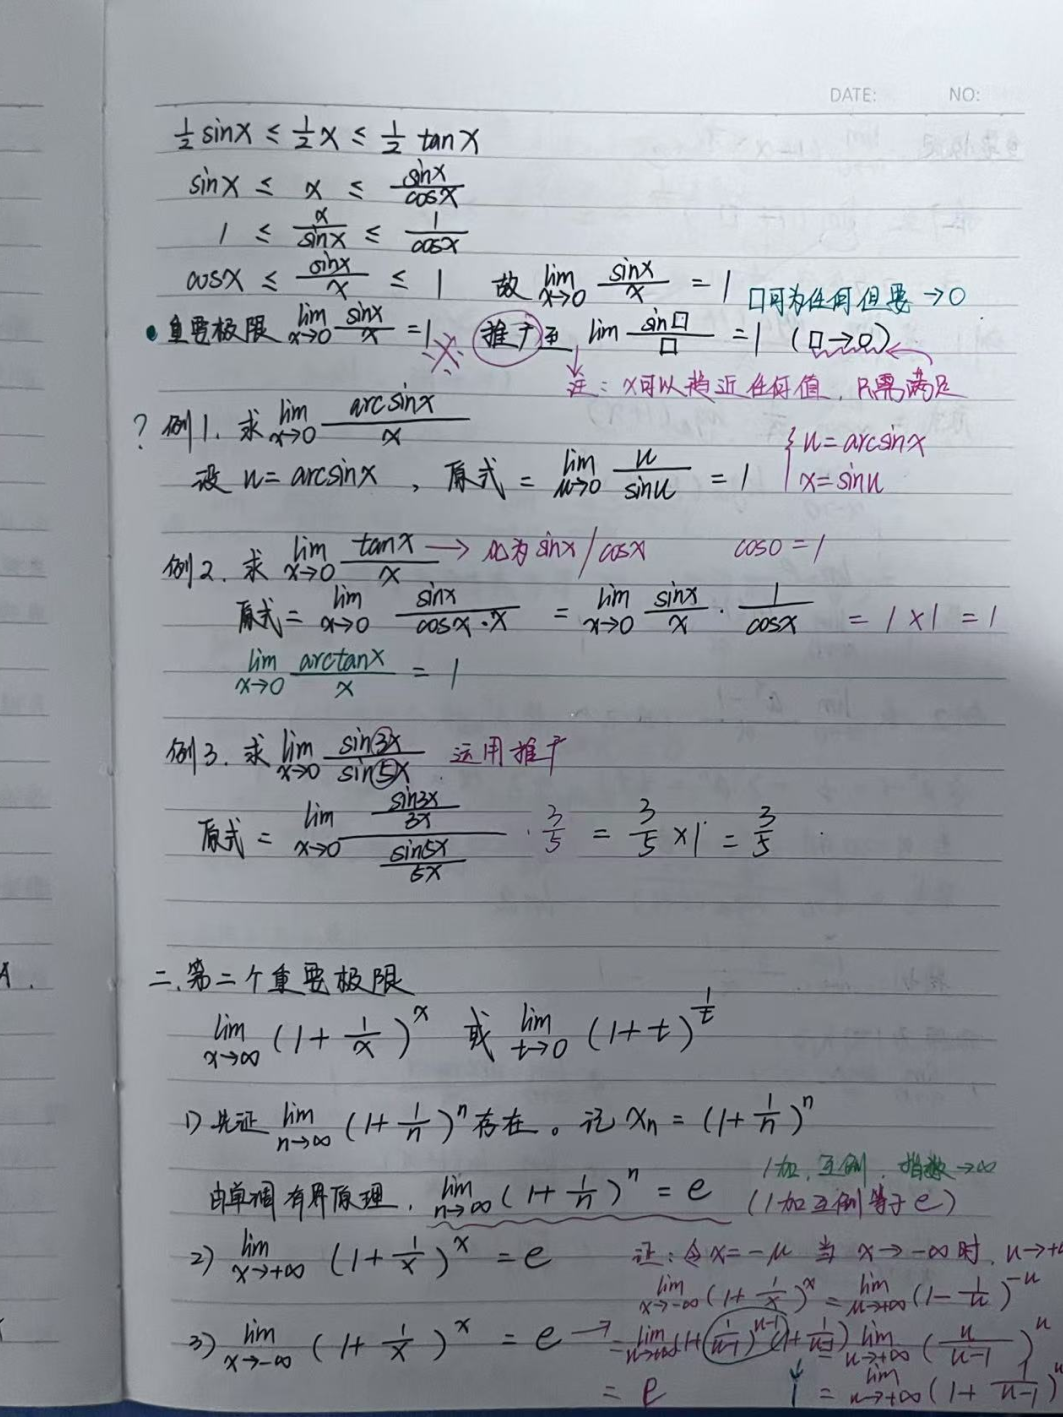 DATE: NO:
½ sinx ≤ ½ x ≤ ½ tanx
sinx ≤ x ≤ sinx/cosx
1 ≤ x/sinx ≤ 1/cosx
cosx ≤ sinx/x ≤ 1 故 lim x→0 sinx/x = 1 □可为任何但要→0
• 重要极限 lim x→0 sinx/x = 1 推广至 lim sin□/□ = 1 (□→0)
注：x可以趋近任何值，只需满足
? 例1. 求 lim x→0 arcsinx/x
设 u = arcsinx , 原式 = lim u→0 u/sinu = 1 { u = arcsinx
x = sinu
例2. 求 lim x→0 tanx/x → 化为 sinx/cosx cos0 = 1
原式 = lim x→0 sinx/(cosx·x) = lim x→0 sinx/x · 1/cosx = 1×1 = 1
lim x→0 arctanx/x = 1
例3. 求 lim x→0 sin3x/sin5x 运用推广
原式 = lim x→0 (sin3x/3x)/(sin5x/5x) · 3/5 = 3/5 ×1 = 3/5
二. 第二个重要极限
lim x→∞ (1+1/x)^x 或 lim t→0 (1+t)^(1/t)
1) 先证 lim n→∞ (1+1/n)^n 存在。记 xn = (1+1/n)^n
1加, 互倒, 指数→∞
由单调有界原理, lim n→∞ (1+1/n)^n = e (1加互倒等于e)
2) lim x→+∞ (1+1/x)^x = e 证：令 x=-u 当 x→-∞时, u→+∞
lim x→-∞ (1+1/x)^x = lim u→+∞ (1-1/u)^-u
3) lim x→-∞ (1+1/x)^x = e → = lim u→+∞ (1+1/(u-1))^(u-1) (1+1/(u-1)) = lim u→+∞ (u/(u-1))^u
= e 1 = lim u→+∞ (1+1/(u-1))^u